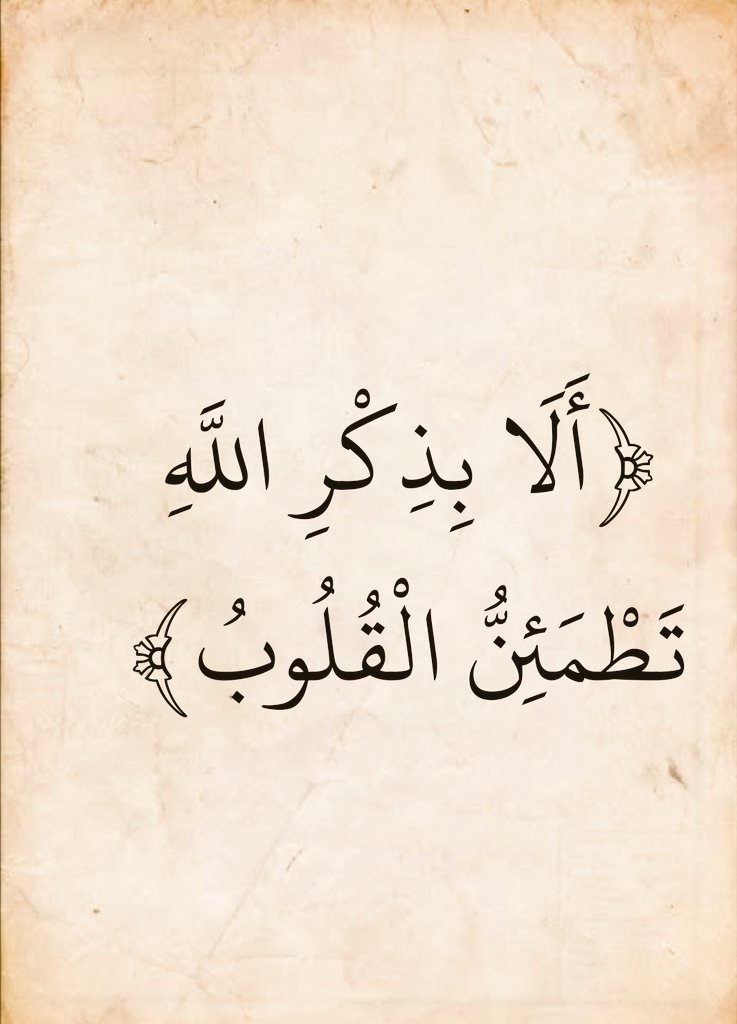 ﴿أَلَا بِذِكْرِ اللَّهِ
تَطْمَئِنُّ الْقُلُوبُ﴾